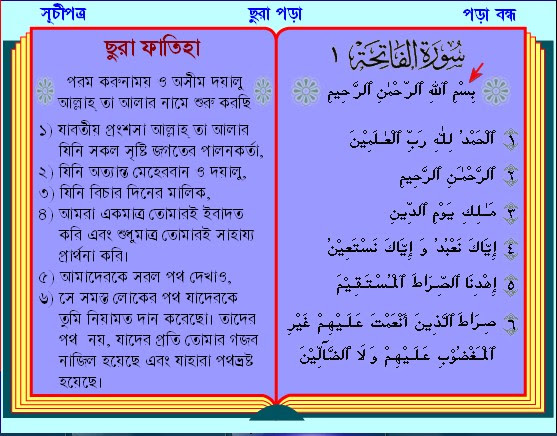 সূচীপত্র ছুরা পড়া পড়া বন্ধ
ছুরা ফাতিহা
পরম করুনাময় ও অসীম দয়ালু
আল্লাহ্ তা আলার নামে শুরু করছি
১) যাবতীয় প্রংশসা আল্লাহ্ তা আলার
যিনি সকল সৃষ্টি জগতের পালনকর্তা,
২) যিনি অত্যান্ত মেহেরবান ও দয়ালু,
৩) যিনি বিচার দিনের মালিক,
৪) আমরা একমাত্র তোমারই ইবাদত
করি এবং শুধুমাত্র তোমারই সাহায্য
প্রার্থনা করি।
৫) আমাদেরকে সরল পথ দেখাও,
৬) সে সমস্ত লোকের পথ যাদেরকে
তুমি নিয়ামত দান করেছো। তাদের
পথ নয়, যাদের প্রতি তোমার গজব
নাজিল হয়েছে এবং যাহারা পথভ্রষ্ট
হয়েছে।
سُورَةُ الْفَاتِحَةِ ١
بِسْمِ ٱللهِ ٱلرَّحْمٰنِ ٱلرَّحِيمِ
١ ٱلْحَمْدُ لِلّٰهِ رَبِّ ٱلْعَـٰلَمِينَ
٢ ٱلرَّحْمَـٰنِ ٱلرَّحِيمِ
٣ مَـٰلِكِ يَوْمِ ٱلدِّينِ
٤ إِيَّاكَ نَعْبُدُ وَ إِيَّاكَ نَسْتَعِيْنُ
٥ اِهْدِنَا ٱلصِّرَاطَ ٱلْمُسْتَقِيْمَ
٦ صِرَاطَ ٱلَّذِينَ أَنْعَمْتَ عَلَيْهِمْ غَيْرِ
ٱلْمَغْضُوْبِ عَلَيْهِمْ وَ لَا ٱلضَّآلِّينَ